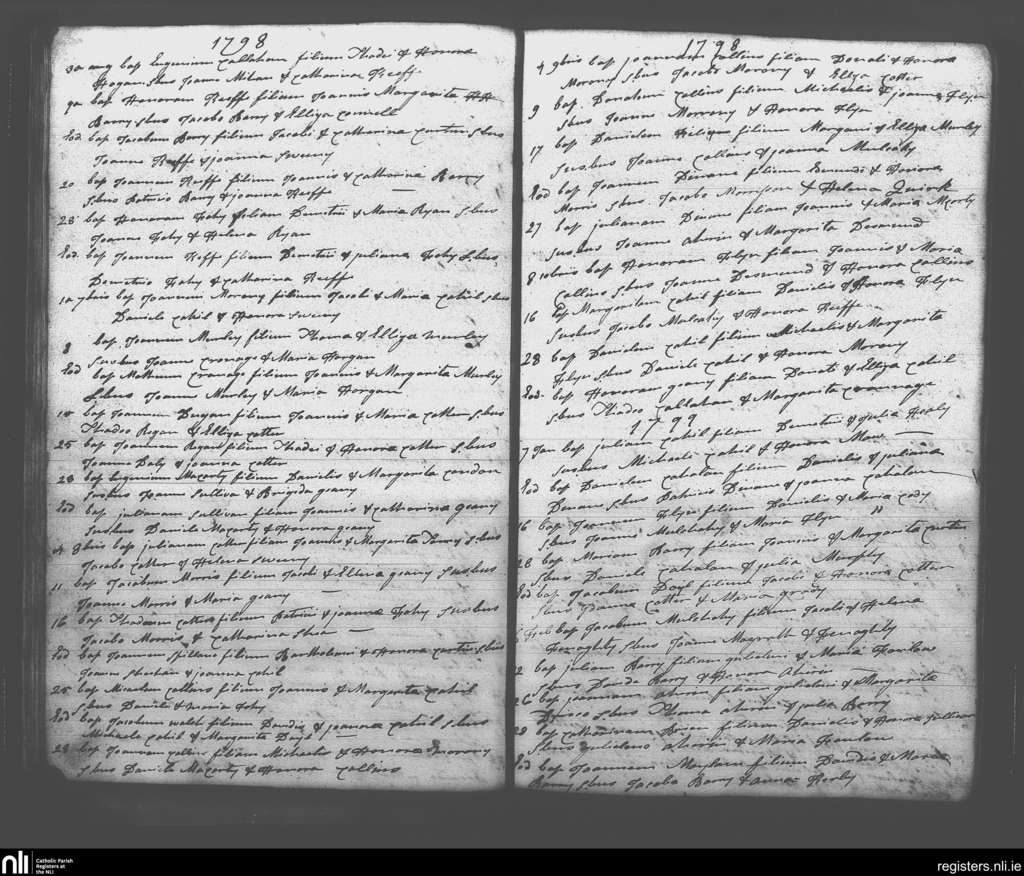 1798
3a aug bap Eugenium Callahan filium Thadei & Honora
Hogan Sbus Joanne Mihan & Catharina Keiffe
9a bap Honoram Keiff filiam Joannis Margarita
Barry Sbus Jacobo Barry & Elliza
Eod bap Jacobum Barry filium Jacobi & Catharina Carter Sbus
Joanne Keiffe & Joanna Sweeny
20 bap Joannem Keiffe filium Joannis & Catharina Barry
Sbus Patricio Barry & Joanna Keiffe
28 bap Honoram Fohy filiam Demetrii & Maria Ryan Sbus
Joanne Fohy & Helena Ryan
Eod. bap Joannem Keff filium Demetrii & Juliana Fohy Sbus
Demetrio Fohy & Catharina Keiff
1a 7bris bap Joannem Morony filium Jacobi & Maria Cahil Sbus
Daniele Cahil & Honora Sweeny
8 bap Joannem Murley filium Thoma & Elliza Murley
Susbus Joanne Cronage & Maria Horgan
Eod bap Cronage filium Joannis & Margarita Murley
Sbus Joanne Murley & Maria Horgan
bap Joannem Dugan filium Joannis & Maria Cotter Sbus
Thadeo Regan & Elliza Cotter
25 bap Joannem Regan filium Thadei & Honora Cotter Sbus
Joanne Daly & Joanna Cotter
28 bap Eugenium Macarty filium Danielis & Margarita Condon
Susbus Joanne Sulliva & Brigida Geany
Eod bap Julianam Sullivan filiam Joannis & Catharina Geany
Susbus Daniele Macarty & Honora Geany
4 8bris bap Julianam Cotter filiam Joannis & Margarita Sbus
Jacobo Cotter & Helena Sweeny
11 bap Jacobum Morris filium Jacobi & Ellena Geany Susbus
Joanne Morris & Maria Geany
16 bap Thadeum Cotter filium Patricii & Joanna Fohy Susbus
Jacobo Morris & Catharina Shea
Eod bap Joannem Spillane filium Bartholomei & Honora Carter Sbus
Joanne Sheehan & Joanna Cahil
25 bap Collins filium Joannis & Margarita Cahil
Sbus Daniele & Maria Fohy
Eod bap Jacobum Welsh filium Davidis & Joanna Cahil Sbus
Michaele Cahil & Margarita Daly
28 bap Joannam Collins filiam Michaelis & Honora Morony
Sbus Daniele Macarty & Honora Collins
1798
4 9bris bap Joannem Collins filium Donati & Honora
Morony Sbus Jacobo Morony & Elliza Cotter
9 bap. Donatum Collins filium Michaelis & Joanna Flyn
Sbus Joanne Morrony & Honora Flyn
17 bap Danielem filium Morgani & Elliza Murley
Susbus Joanne Collins & Joanna Mulcahy
Eod bap Joannem Divane filium Edmundi & Honora
Morris Sbus Jacobo Morrison & Helena Quirk
27 bap Julianam Divane filiam Joannis & Maria Mcarty
Susbus Joanne Aherin & Margarita Desmond
8 10bris bap Honoram Flyn filiam Joannis & Maria
Collins Sbus Joanne Desmond & Honora Collins
16 bap Margaritam Cahil filiam Danielis & Honora Flyn
Susbus Jacobo Mulcahy & Honora Keiffe
28 bap Danielem Cahil filium Michaelis & Margarita
Flyn Sbus Daniele Cahil & Honora Morony
Eod. bap Honoram Geany filiam Donati & Elliza Cahil
Sbus Thadeo Callahan & Margarita Cronnage
1799
7 Jan bap Juliam Cahil filiam Demetrii & Julia Healy
Susbus Michaele Cahil & Honora
Eod bap Danielem Cahalan filium Danielis & Juliana
Divane Sbus Patricio Divane & Joanna Cahalan
16 bap Joannem Flyn filium Danielis & Maria Cody
Sbus Joanne Mulchahy & Maria Flyn
28 bap Mariam Barry filiam Joannis & Margarita Carter
Sbus Daniele Cahalan & Julia Murphy
Eod bap Jacobum Dayl filium Jacobi & Honora Cotter
Sbus Joanne Cotter & Maria Grady
Feb bap Jacobum Mulchahy filium Jacobi & Helena
Geraghty Sbus Joanne Magrath & Geraghty
bap Juliam Barry filiam Gulielmi & Maria Hanlon
Sbus Davide Barry & Honora Aherin
26 bap Joannam Aherin filiam Gulielmi & Margarita
Sbus Thoma Aherin & Julia Barry
bap Catharinam Brien filiam Danielis & Honora Sullivan
Sbus Gulielmo Aherin & Maria Hanlon
Eod bap Joannem filium Davidis & Maria
Barry Sbus Jacobo Barry & Anna
nli
Catholic Parish
Registers at
the NLI
registers.nli.ie